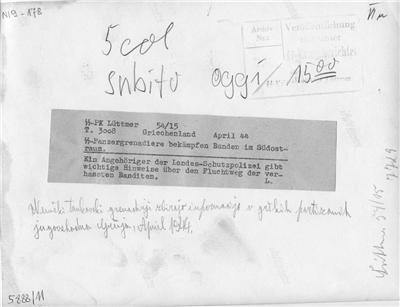 N19-178
5 col
subito oggi / 15 00
Archiv
Veröffentlichung
ϟϟ-PK Lüttmer 54/15
T. 3008 Griechenland April 44
ϟϟ-Panzergrenadiere bekämpfen Banden im Südost-
raum.
Ein Angehöriger der Landes-Schutzpolizei gibt
wichtige Hinweise über den Fluchtweg der ver-
hassten Banditen. L.
Nemški tankovski grenadirji zbirajo informacije o grških partizanih
April 1944.
5888/11
54/15